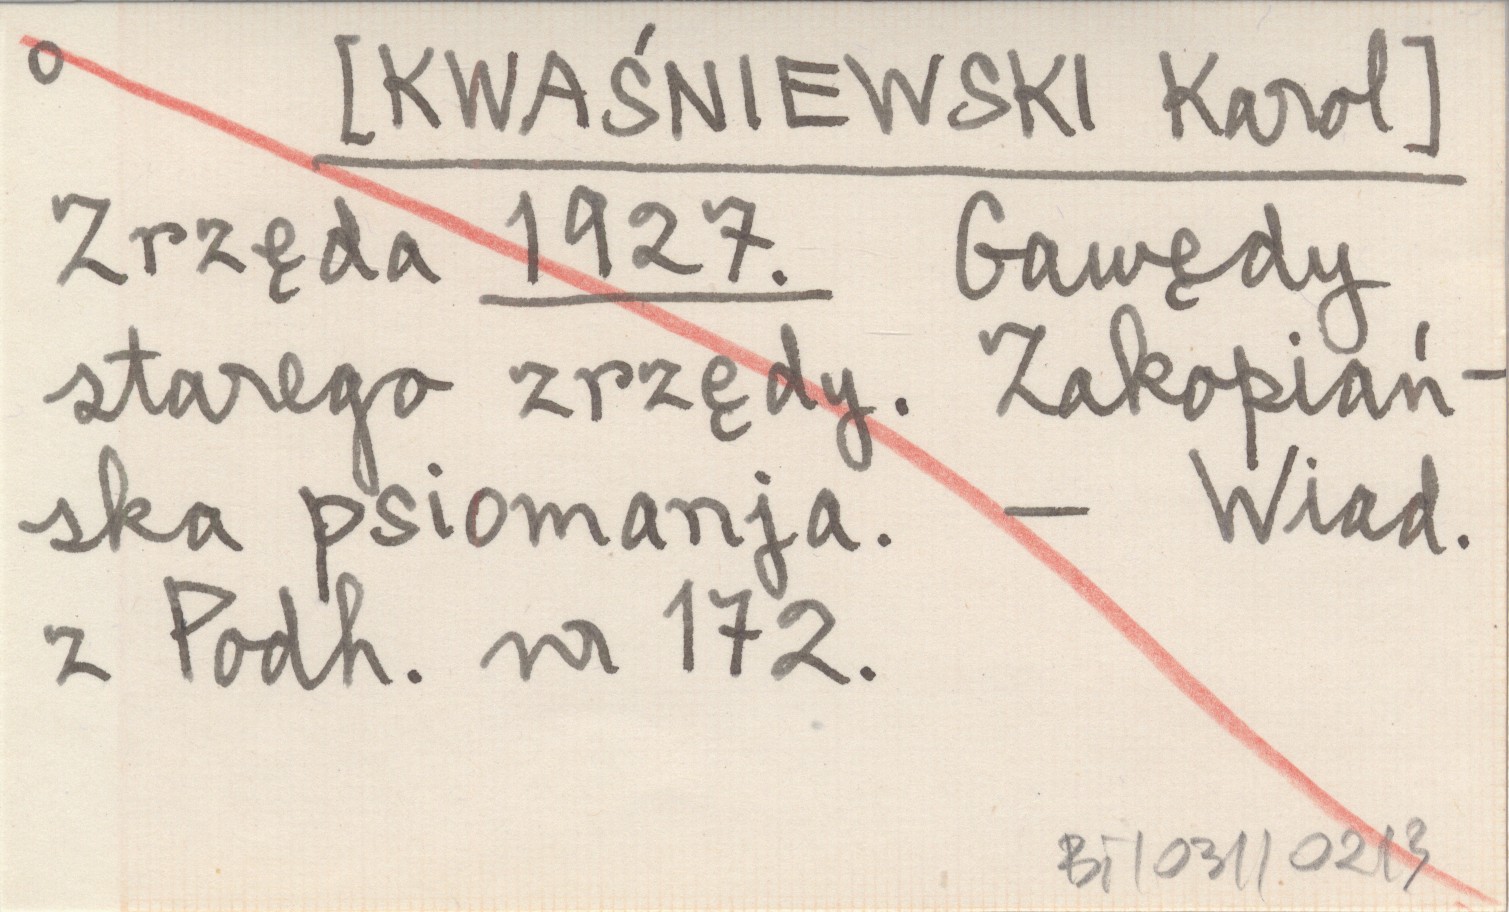 o [KWAŚNIEWSKI Karol]
Zrzęda 1927. Gawędy
starego zrzędy. Zakopiań-
ska psiomanja. — Wiad.
z Podh. nr 172.
BT/031/10213